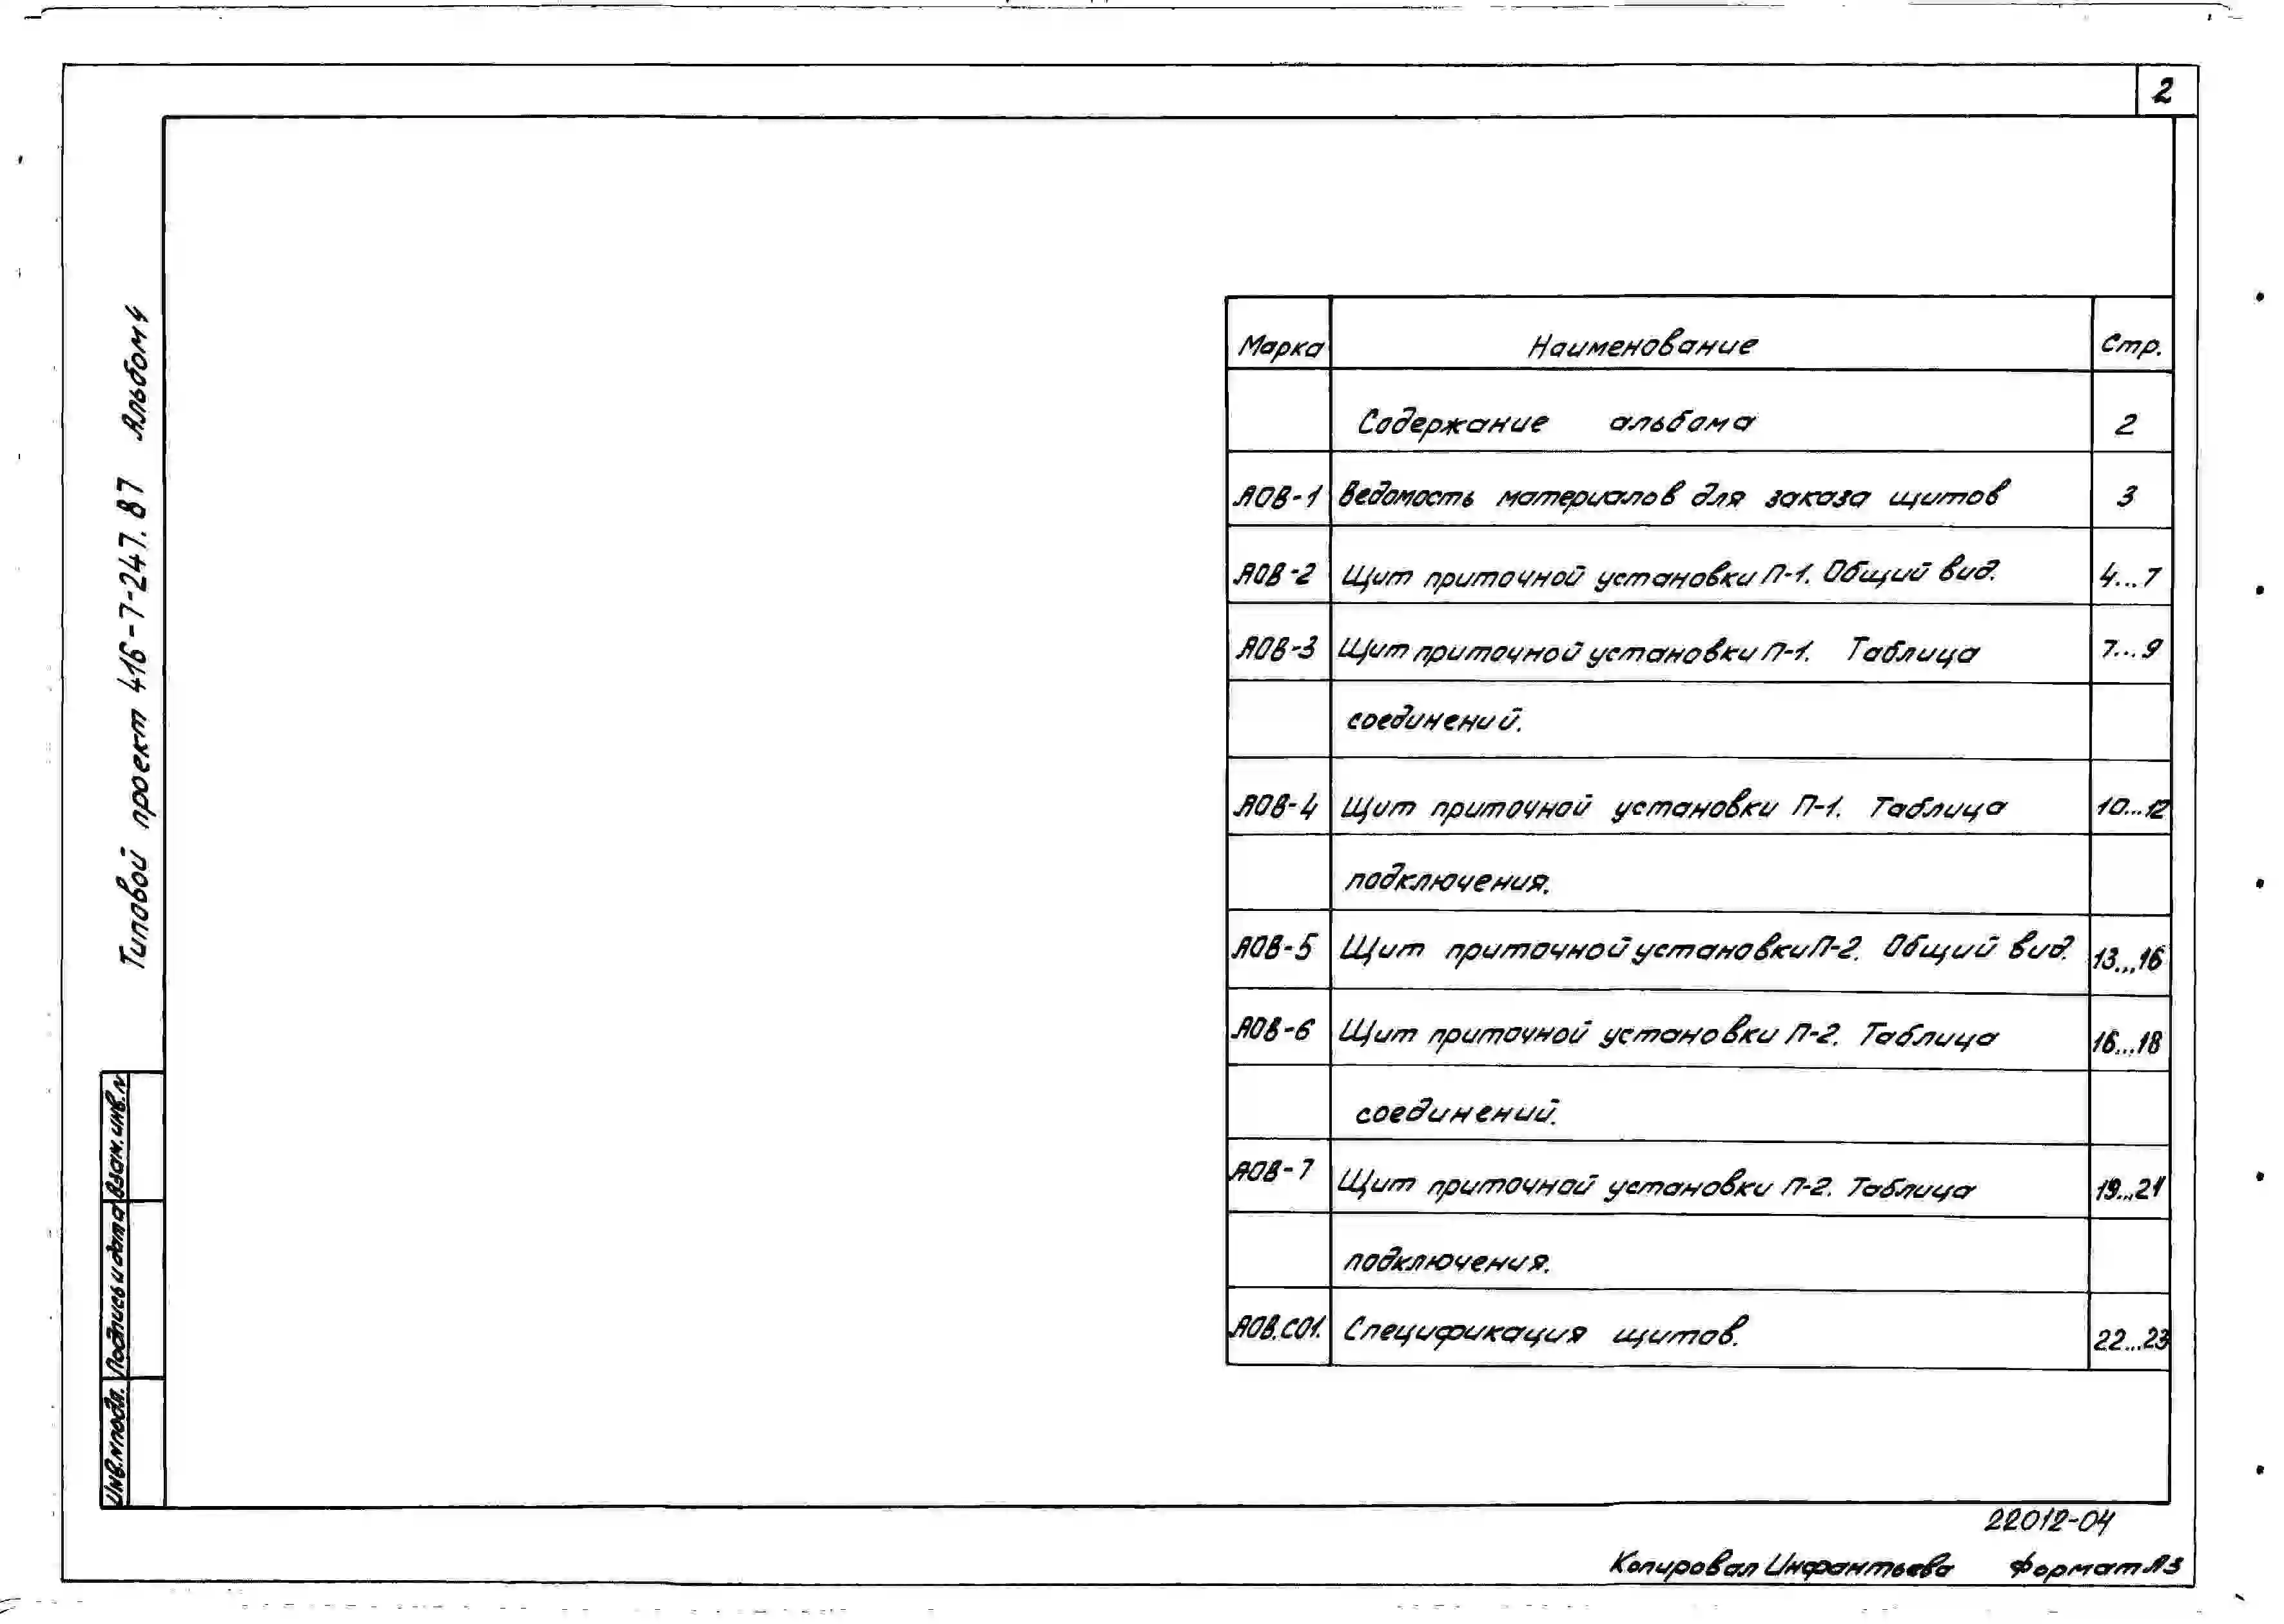 2
Типовой проект 416-7-247.87 Альбом 4
Марка Наименование Стр.
Содержание альбома 2
АОВ-1 Ведомость материалов для заказа щитов 3
АОВ-2 Щит приточной установки П-1. Общий вид. 4...7
АОВ-3 Щит приточной установки П-1. Таблица 7...9
соединений.
АОВ-4 Щит приточной установки П-1. Таблица 10...12
подключения.
АОВ-5 Щит приточной установки П-2. Общий вид. 13...16
АОВ-6 Щит приточной установки П-2. Таблица 16...18
соединений.
АОВ-7 Щит приточной установки П-2. Таблица 19...21
подключения.
АОВ.СО1. Спецификация щитов. 22...23
Взам. инв. N
Подпись и дата
Инв. N подл.
22012-04
Копировал Инфантьева Формат А3